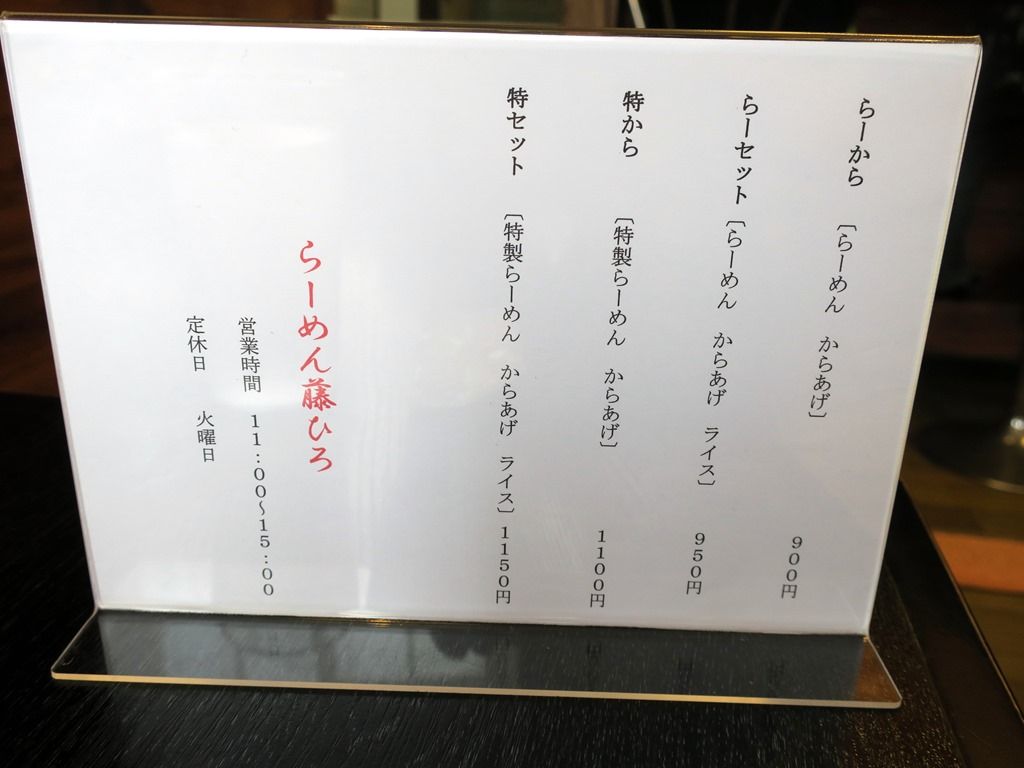 らーから 〔らーめん からあげ〕 900円
らーセット〔らーめん からあげ ライス〕 950円
特から 〔特製らーめん からあげ〕 1100円
特セット 〔特製らーめん からあげ ライス〕1150円
らーめん藤ひろ
営業時間 11:00~15:00
定休日 火曜日